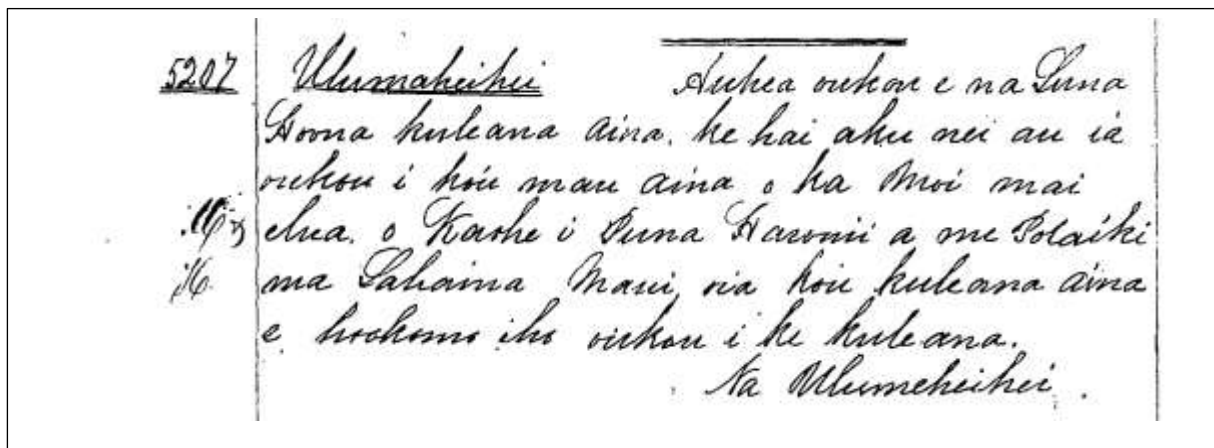 5207 Ulumaheihei Auhea oukou e na Luna
Hoona kuleana aina. ke hai aku nei au ia
oukou i kóu mau aina o ka Moi mai
elua. o Kaohe i Puna Hawaii a me Polaiki
ma Lahaina Maui oia kou kuleana aina
e hookomo iho oukou i ke kuleana.
Na Ulumeheihei.